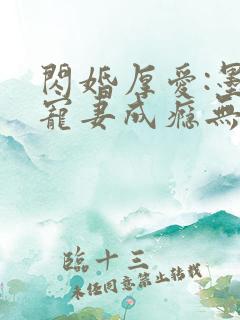 閃婚厚愛:墨
寵妻成癮無
臨十三
未任同意禁止转載